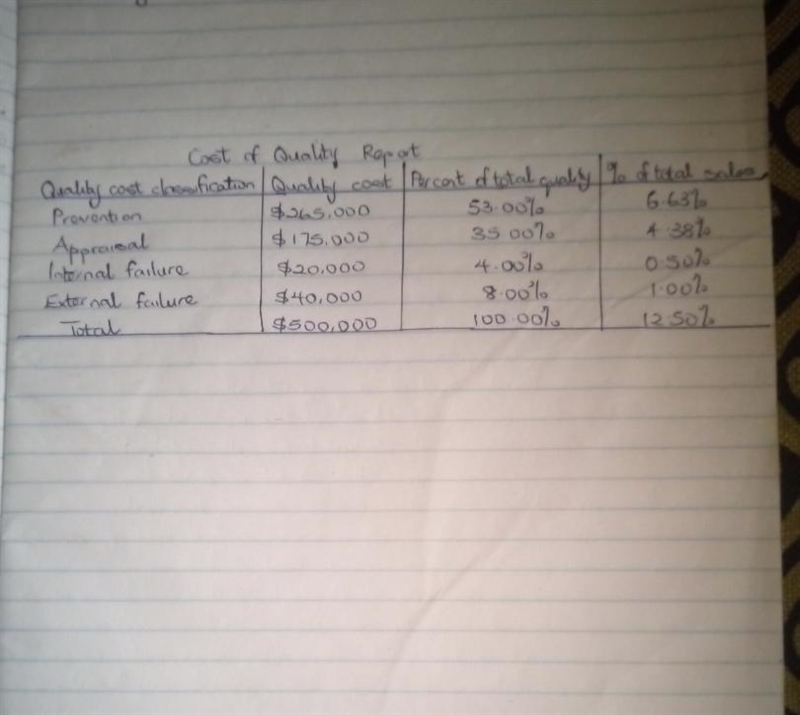 Cost of Quality Report
Quality cost classification | Quality cost | Percent of total quality | % of total sales
Prevention $265,000 53.00% 6.63%
Appraisal $175,000 35.00% 4.38%
Internal failure $20,000 4.00% 0.50%
External failure $40,000 8.00% 1.00%
Total $500,000 100.00% 12.50%